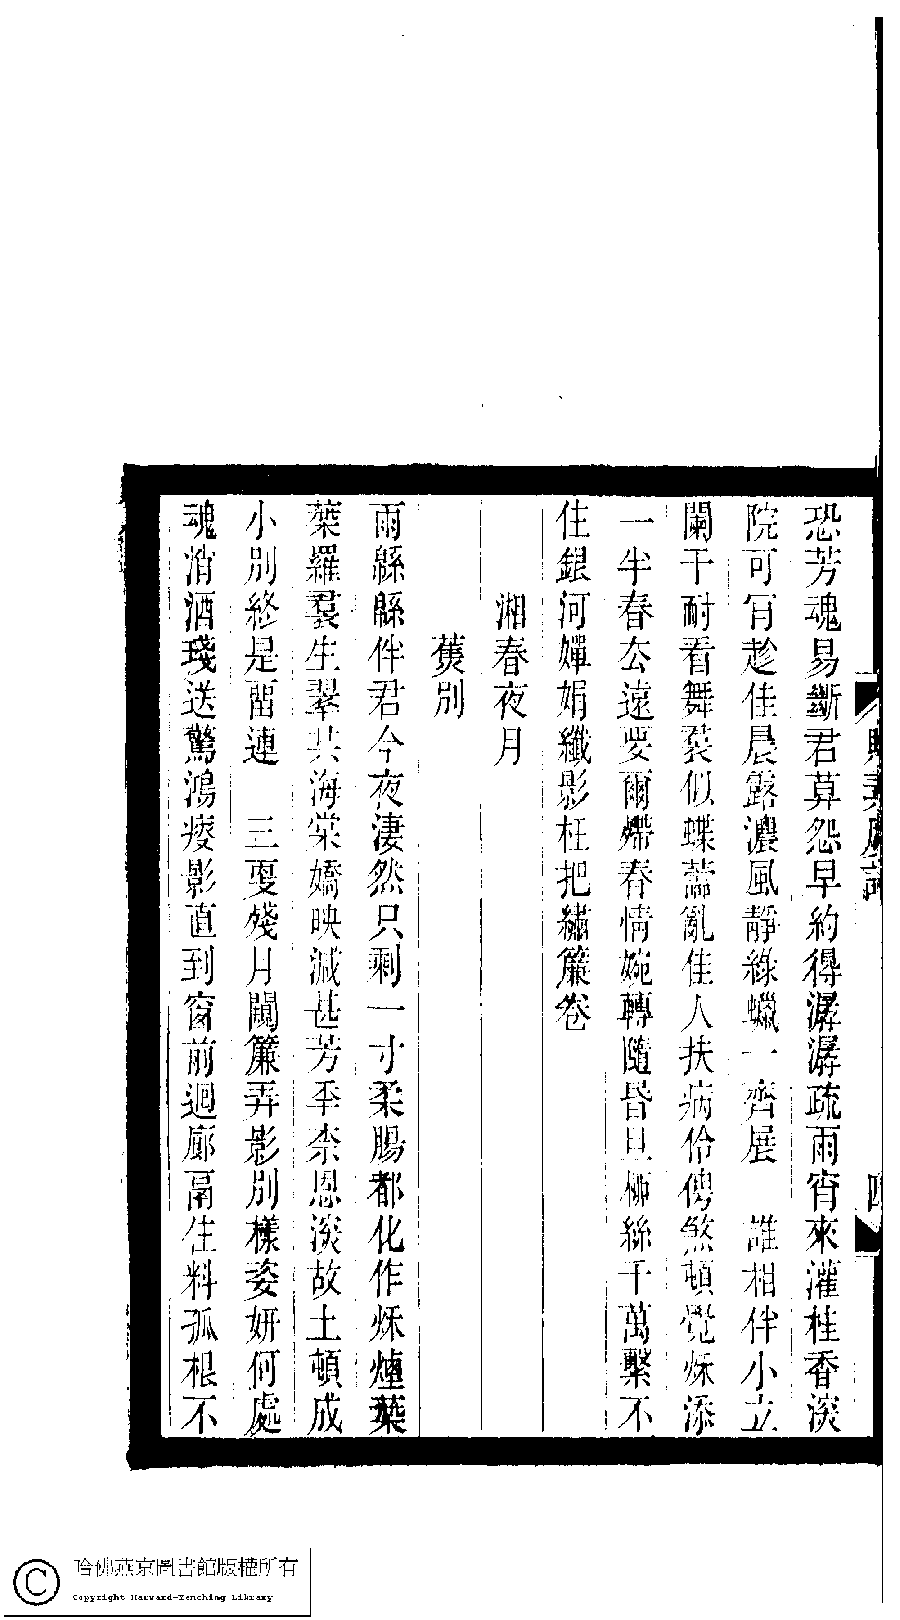 恐芳魂易斷君莫怨早約得潺潺疏雨宵來灌桂香淡
院可肎趁佳晨露濃風靜綠蠟一齊展　誰相伴小立
闌干耐看舞裠似蝶蘸亂佳人扶病伶俜煞頓覺烁添
一半春公遠要爾𢃄春情婉轉隨昏旦柳絲千萬繫不
住銀河嬋娟纖影枉把繡簾卷
湘春夜月
蕉別
雨緜緜伴君今夜淒然只剩一寸柔腸都化作烁煙葉
葉羅裠生翠共海棠嬌映減甚芳年柰恩淡故土頓成
小別終是畱連　三更殘月闖簾弄影別樣姿妍何處
魂消酒琖送驚鴻瘦影直到窗前迴廊鬲住料孤根不
四
哈佛燕京圖書館版權所有
Copyright Harvard-Yenching Library